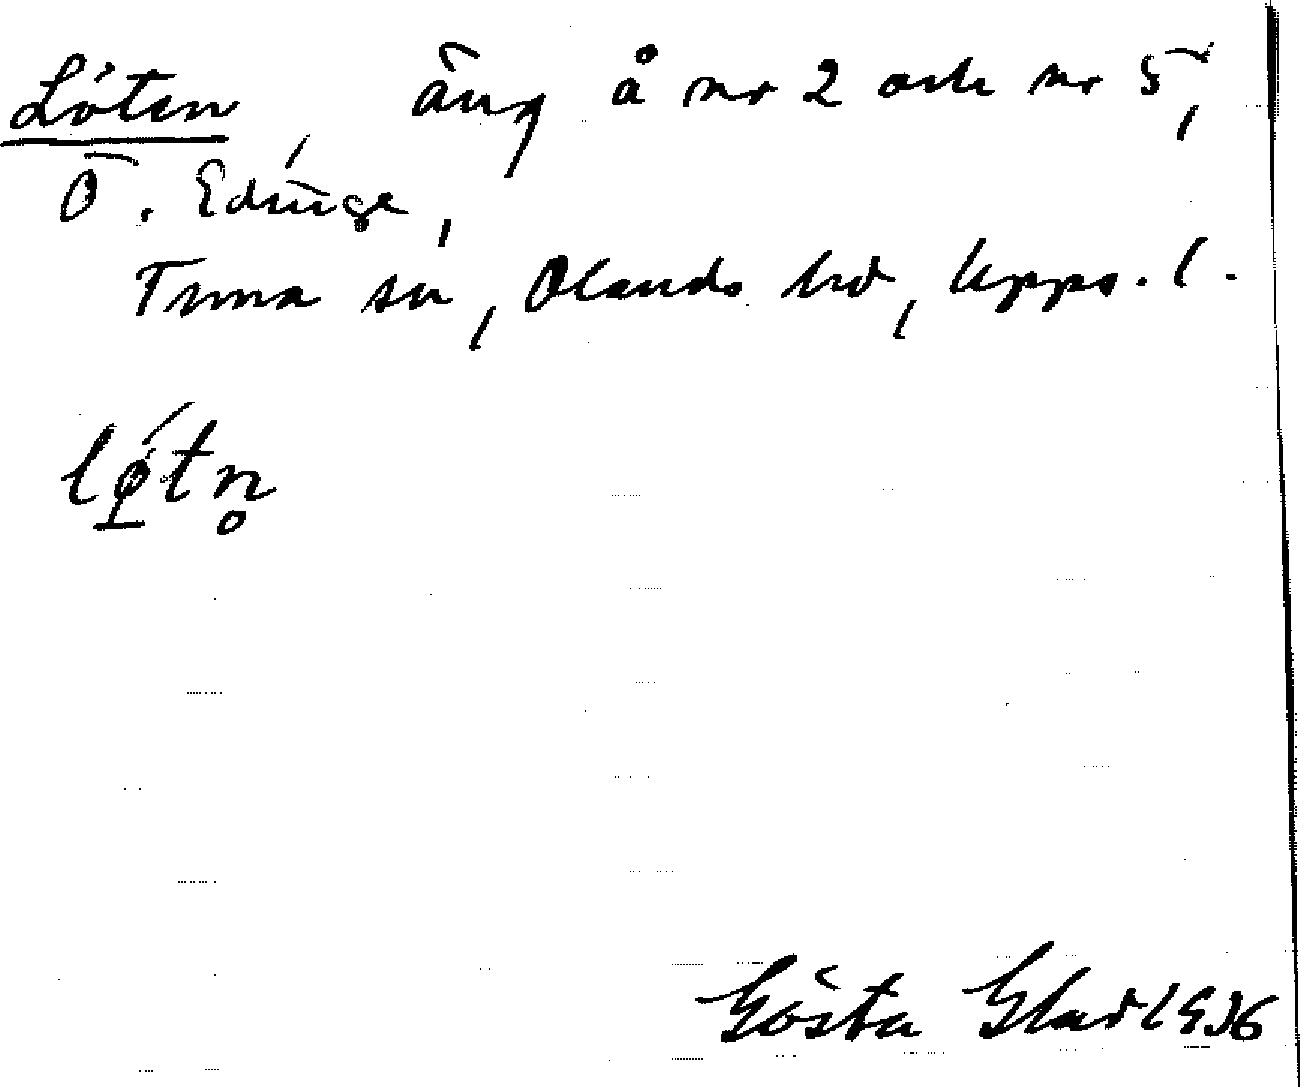 Löten, äng å nr 2 och nr 5,
Ö. Edinge,
Tuna sn, Olands hd, Upps. l.
lǿ̱tn̥
Gösta Glad 1936